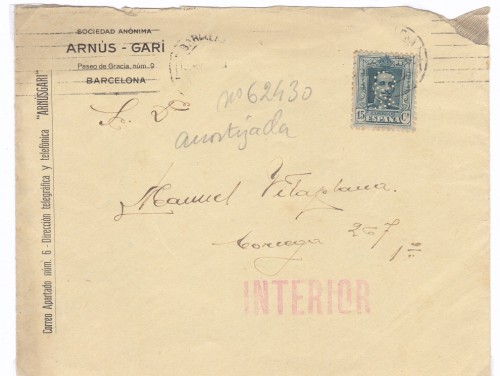 SOCIEDAD ANÓNIMA
ARNÚS - GARÍ
Paseo de Gracia, núm. 9
BARCELONA
Correo Apartado núm. 6 - Dirección telegráfica y telefónica "ARNUSGARI"
15 Cs
ESPAÑA
nº 62430
amortizada
Manuel Vilaplana.
2º 7
INTERIOR